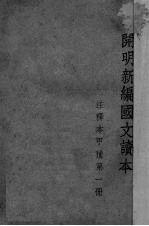 開明新編國文讀本
註釋本甲種第一冊